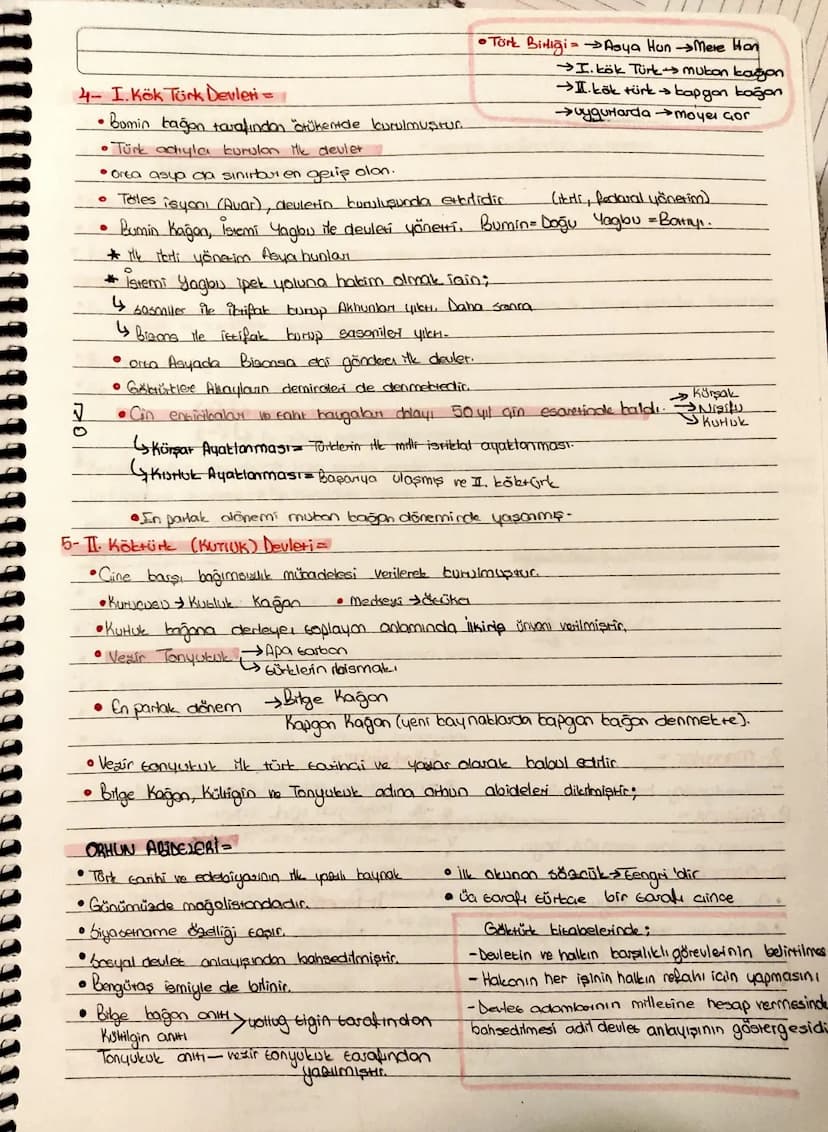 • Türk Birliği = → Asya Hun → Mete Han
→ I. kök Türk → mukan kağan
→ II. kök türk → kapgan kağan
→ uygurlarda → moyen çor
4- I. Kök Türk Devleti =
• Bumin kağan tarafından ötükende kurulmuştur.
• Türk adıyla kurulan ilk devlet
• orta asya da sınırları en geniş olan.
• Töles isyanı (Avar), devletin kuruluşunda etkilidir (ikili, federal yönetim)
• Bumin Kağan, İstemi Yagbu ile devleti yönetti. Bumin = Doğu Yagbu = Batıyı.
* ilk ikili yönetim Asya hunları
* İstemi Yagbu ipek yoluna hakim olmak için;
↳ sasaniler ile ittifak kurup Akhunları yıktı. Daha sonra
↳ Bizans ile ittifak kurup sasanileri yıktı.
• orta Asyada Bizansa elçi gönderen ilk devlet.
• Göktürklere Altayların demircileri de denmektedir.
• Çin entrikaları ve taht kavgaları dolayı 50 yıl çin esaretinde kaldı. → Kürşak
→ Nişifu
→ Kutluk
↳ Kürşat Ayaklanması = Türklerin ilk milli istiklal ayaklanması.
↳ Kutluk Ayaklanması = Başarıya ulaşmış ve II. köktürk
• En parlak dönemi mukan kağan döneminde yaşanmış.
5- II. Köktürk (KUTLUK) Devleti =
• Çine karşı bağımsızlık mücadelesi verilerek kurulmuştur.
• Kurucusu → Kutluk Kağan • Merkezi → ötüken
• Kutluk kağana derleyen toplayan anlamında İlteriş ünvanı verilmiştir.
• Vezir Tonyukuk → Apa tarkan
↳ türklerin bismakı
• En parlak dönem → Bilge Kağan
Kapgan Kağan (yeni kaynaklarda kapgan kağan denmekte).
• Vezir tonyukuk ilk türk tarihçi ve yazar olarak kabul edilir
• Bilge Kağan, Kültigin ve Tonyukuk adına orhun abideleri dikilmiştir;
ORHUN ABİDELERİ =
• Türk tarihi ve edebiyatının ilk yazılı kaynak
• Günümüzde moğolistandadır.
• Siyasetname özelliği taşır.
• Sosyal devlet anlayışından bahsedilmiştir.
• Bengütaş ismiyle de bilinir.
• Bilge kağan anıtı
Kültilgin anıtı > yollug tigin tarafından
Tonyukuk anıtı — vezir tonyukuk tarafından
yazılmıştır.
• ilk okunan sözcük → Tengri 'dir
• üç tarafı türkçe bir tarafı çince
Göktürk kitabelerinde;
- Devletin ve halkın karşılıklı görevlerinin belirtilmes
- Hakanın her işinin halkın refahı için yapmasını
- Devlet adamlarının milletine hesap vermesinde
bahsedilmesi adil devlet anlayışının göstergesidi